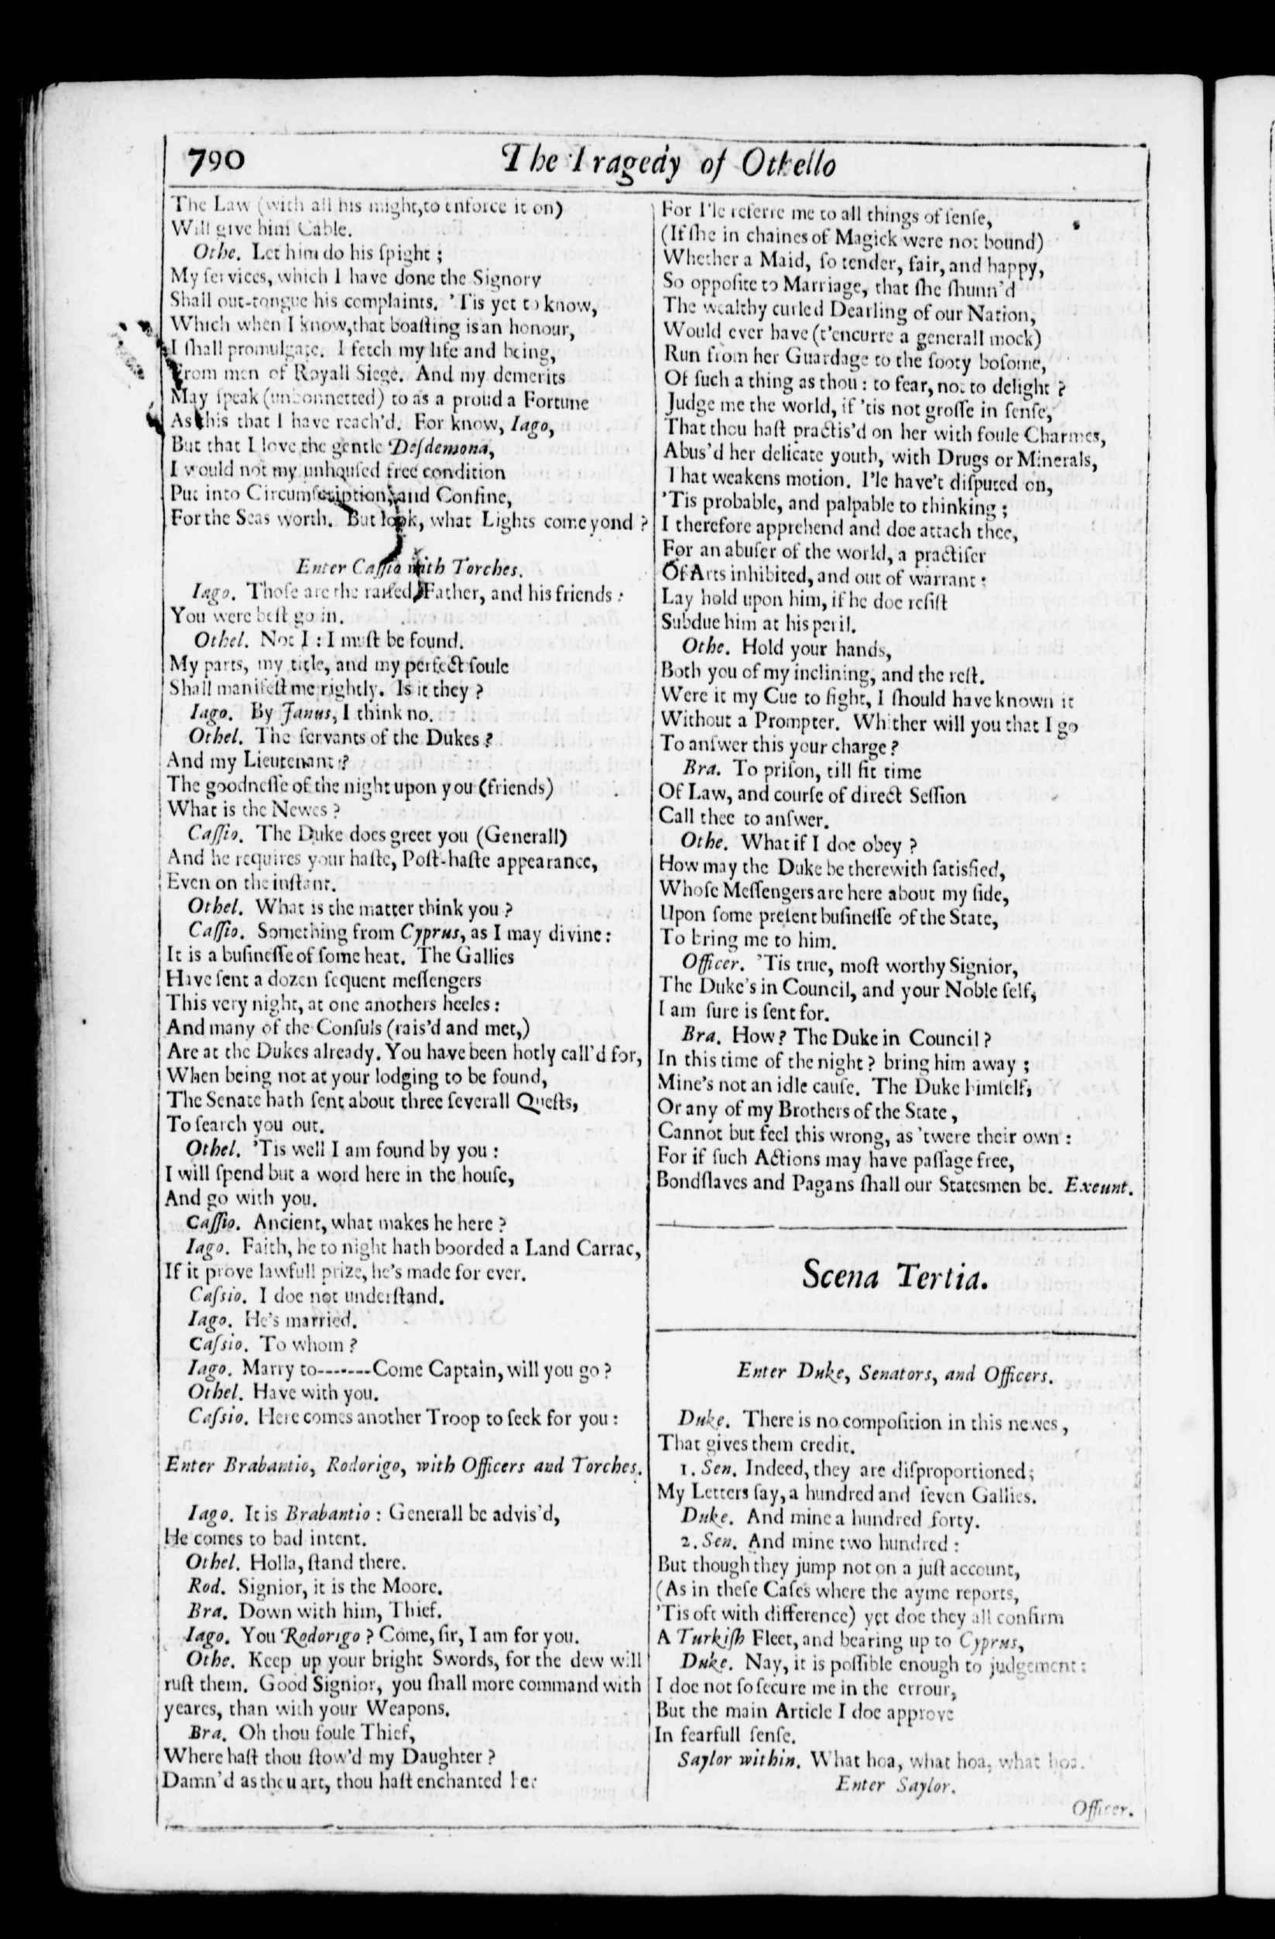 790
The Tragedy of Othello
The Law (with all his might,to enforce it on)
Will give him Cable.
Othe. Let him do his ſpight ;
My ſervices, which I have done the Signory
Shall out-tongue his complaints. 'Tis yet to know,
Which when I know,that boaſting is an honour,
I ſhall promulgate. I fetch my life and being,
From men of Royall Siege. And my demerits
May ſpeak (unbonnetted) to as a proud a Fortune
As this that I have reach'd. For know, Iago,
But that I love the gentle Deſdemona,
I would not my unhouſed free condition
Put into Circumſcription, and Confine,
For the Seas worth. But look, what Lights come yond ?
Enter Caſſio with Torches.
Iago. Thoſe are the raiſed Father, and his friends :
You were beſt go in.
Othel. Not I : I muſt be found.
My parts, my title, and my perfect ſoule
Shall manifeſt me rightly. Is it they ?
Iago. By Janus, I think no.
Othel. The ſervants of the Dukes ?
And my Lieutenant ?
The goodneſſe of the night upon you (friends)
What is the Newes ?
Caſſio. The Duke does greet you (Generall)
And he requires your haſte, Poſt-haſte appearance,
Even on the inſtant.
Othel. What is the matter think you ?
Caſſio. Something from Cyprus, as I may divine :
It is a buſineſſe of ſome heat. The Gallies
Have ſent a dozen ſequent meſſengers
This very night, at one anothers heeles :
And many of the Conſuls (rais'd and met,)
Are at the Dukes already. You have been hotly call'd for,
When being not at your lodging to be found,
The Senate hath ſent about three ſeverall Queſts,
To ſearch you out.
Othel. 'Tis well I am found by you :
I will ſpend but a word here in the houſe,
And go with you.
Caſſio. Ancient, what makes he here ?
Iago. Faith, he to night hath boorded a Land Carrac,
If it prove lawfull prize, he's made for ever.
Caſsio. I doe not underſtand.
Iago. He's married.
Caſsio. To whom ?
Iago. Marry to-------Come Captain, will you go ?
Othel. Have with you.
Caſsio. Here comes another Troop to ſeek for you :
Enter Brabantio, Rodorigo, with Officers and Torches.
Iago. It is Brabantio : Generall be advis'd,
He comes to bad intent.
Othel. Holla, ſtand there.
Rod. Signior, it is the Moore.
Bra. Down with him, Thief.
Iago. You Rodorigo ? Come, ſir, I am for you.
Othe. Keep up your bright Swords, for the dew will
ruſt them. Good Signior, you ſhall more command with
yeares, than with your Weapons.
Bra. Oh thou foule Thief,
Where haſt thou ſtow'd my Daughter ?
Damn'd as thou art, thou haſt enchanted her
For I'le referre me to all things of ſenſe,
(If ſhe in chaines of Magick were not bound)
Whether a Maid, ſo tender, fair, and happy,
So oppoſite to Marriage, that ſhe ſhunn'd
The wealthy curled Dearling of our Nation,
Would ever have (t'encurre a generall mock)
Run from her Guardage to the ſooty boſome,
Of ſuch a thing as thou : to fear, not to delight ?
Judge me the world, if 'tis not groſſe in ſenſe,
That thou haſt practis'd on her with foule Charmes,
Abus'd her delicate youth, with Drugs or Minerals,
That weakens motion. I'le have't diſputed on,
'Tis probable, and palpable to thinking ;
I therefore apprehend and doe attach thee,
For an abuſer of the world, a practiſer
Of Arts inhibited, and out of warrant ;
Lay hold upon him, if he doe reſiſt
Subdue him at his peril.
Othe. Hold your hands,
Both you of my inclining, and the reſt.
Were it my Cue to fight, I ſhould have known it
Without a Prompter. Whither will you that I go
To anſwer this your charge ?
Bra. To priſon, till fit time
Of Law, and courſe of direct Seſſion
Call thee to anſwer.
Othe. What if I doe obey ?
How may the Duke be therewith ſatisfied,
Whoſe Meſſengers are here about my ſide,
Upon ſome preſent buſineſſe of the State,
To bring me to him.
Officer. 'Tis true, moſt worthy Signior,
The Duke's in Council, and your Noble ſelf,
I am ſure is ſent for.
Bra. How ? The Duke in Council ?
In this time of the night ? bring him away ;
Mine's not an idle cauſe. The Duke himſelf,
Or any of my Brothers of the State,
Cannot but feel this wrong, as 'twere their own :
For if ſuch Actions may have paſſage free,
Bondſlaves and Pagans ſhall our Statesmen be. Exeunt.
Scena Tertia.
Enter Duke, Senators, and Officers.
Duke. There is no compoſition in this newes,
That gives them credit.
1. Sen. Indeed, they are diſproportioned;
My Letters ſay, a hundred and ſeven Gallies.
Duke. And mine a hundred forty.
2. Sen. And mine two hundred :
But though they jump not on a juſt account,
(As in theſe Caſes where the ayme reports,
'Tis oft with difference) yet doe they all confirm
A Turkiſh Fleet, and bearing up to Cyprus,
Duke. Nay, it is poſſible enough to judgement :
I doe not ſo ſecure me in the errour,
But the main Article I doe approve
In fearfull ſenſe.
Saylor within. What hoa, what hoa, what hoa.
Enter Saylor.
Officer.